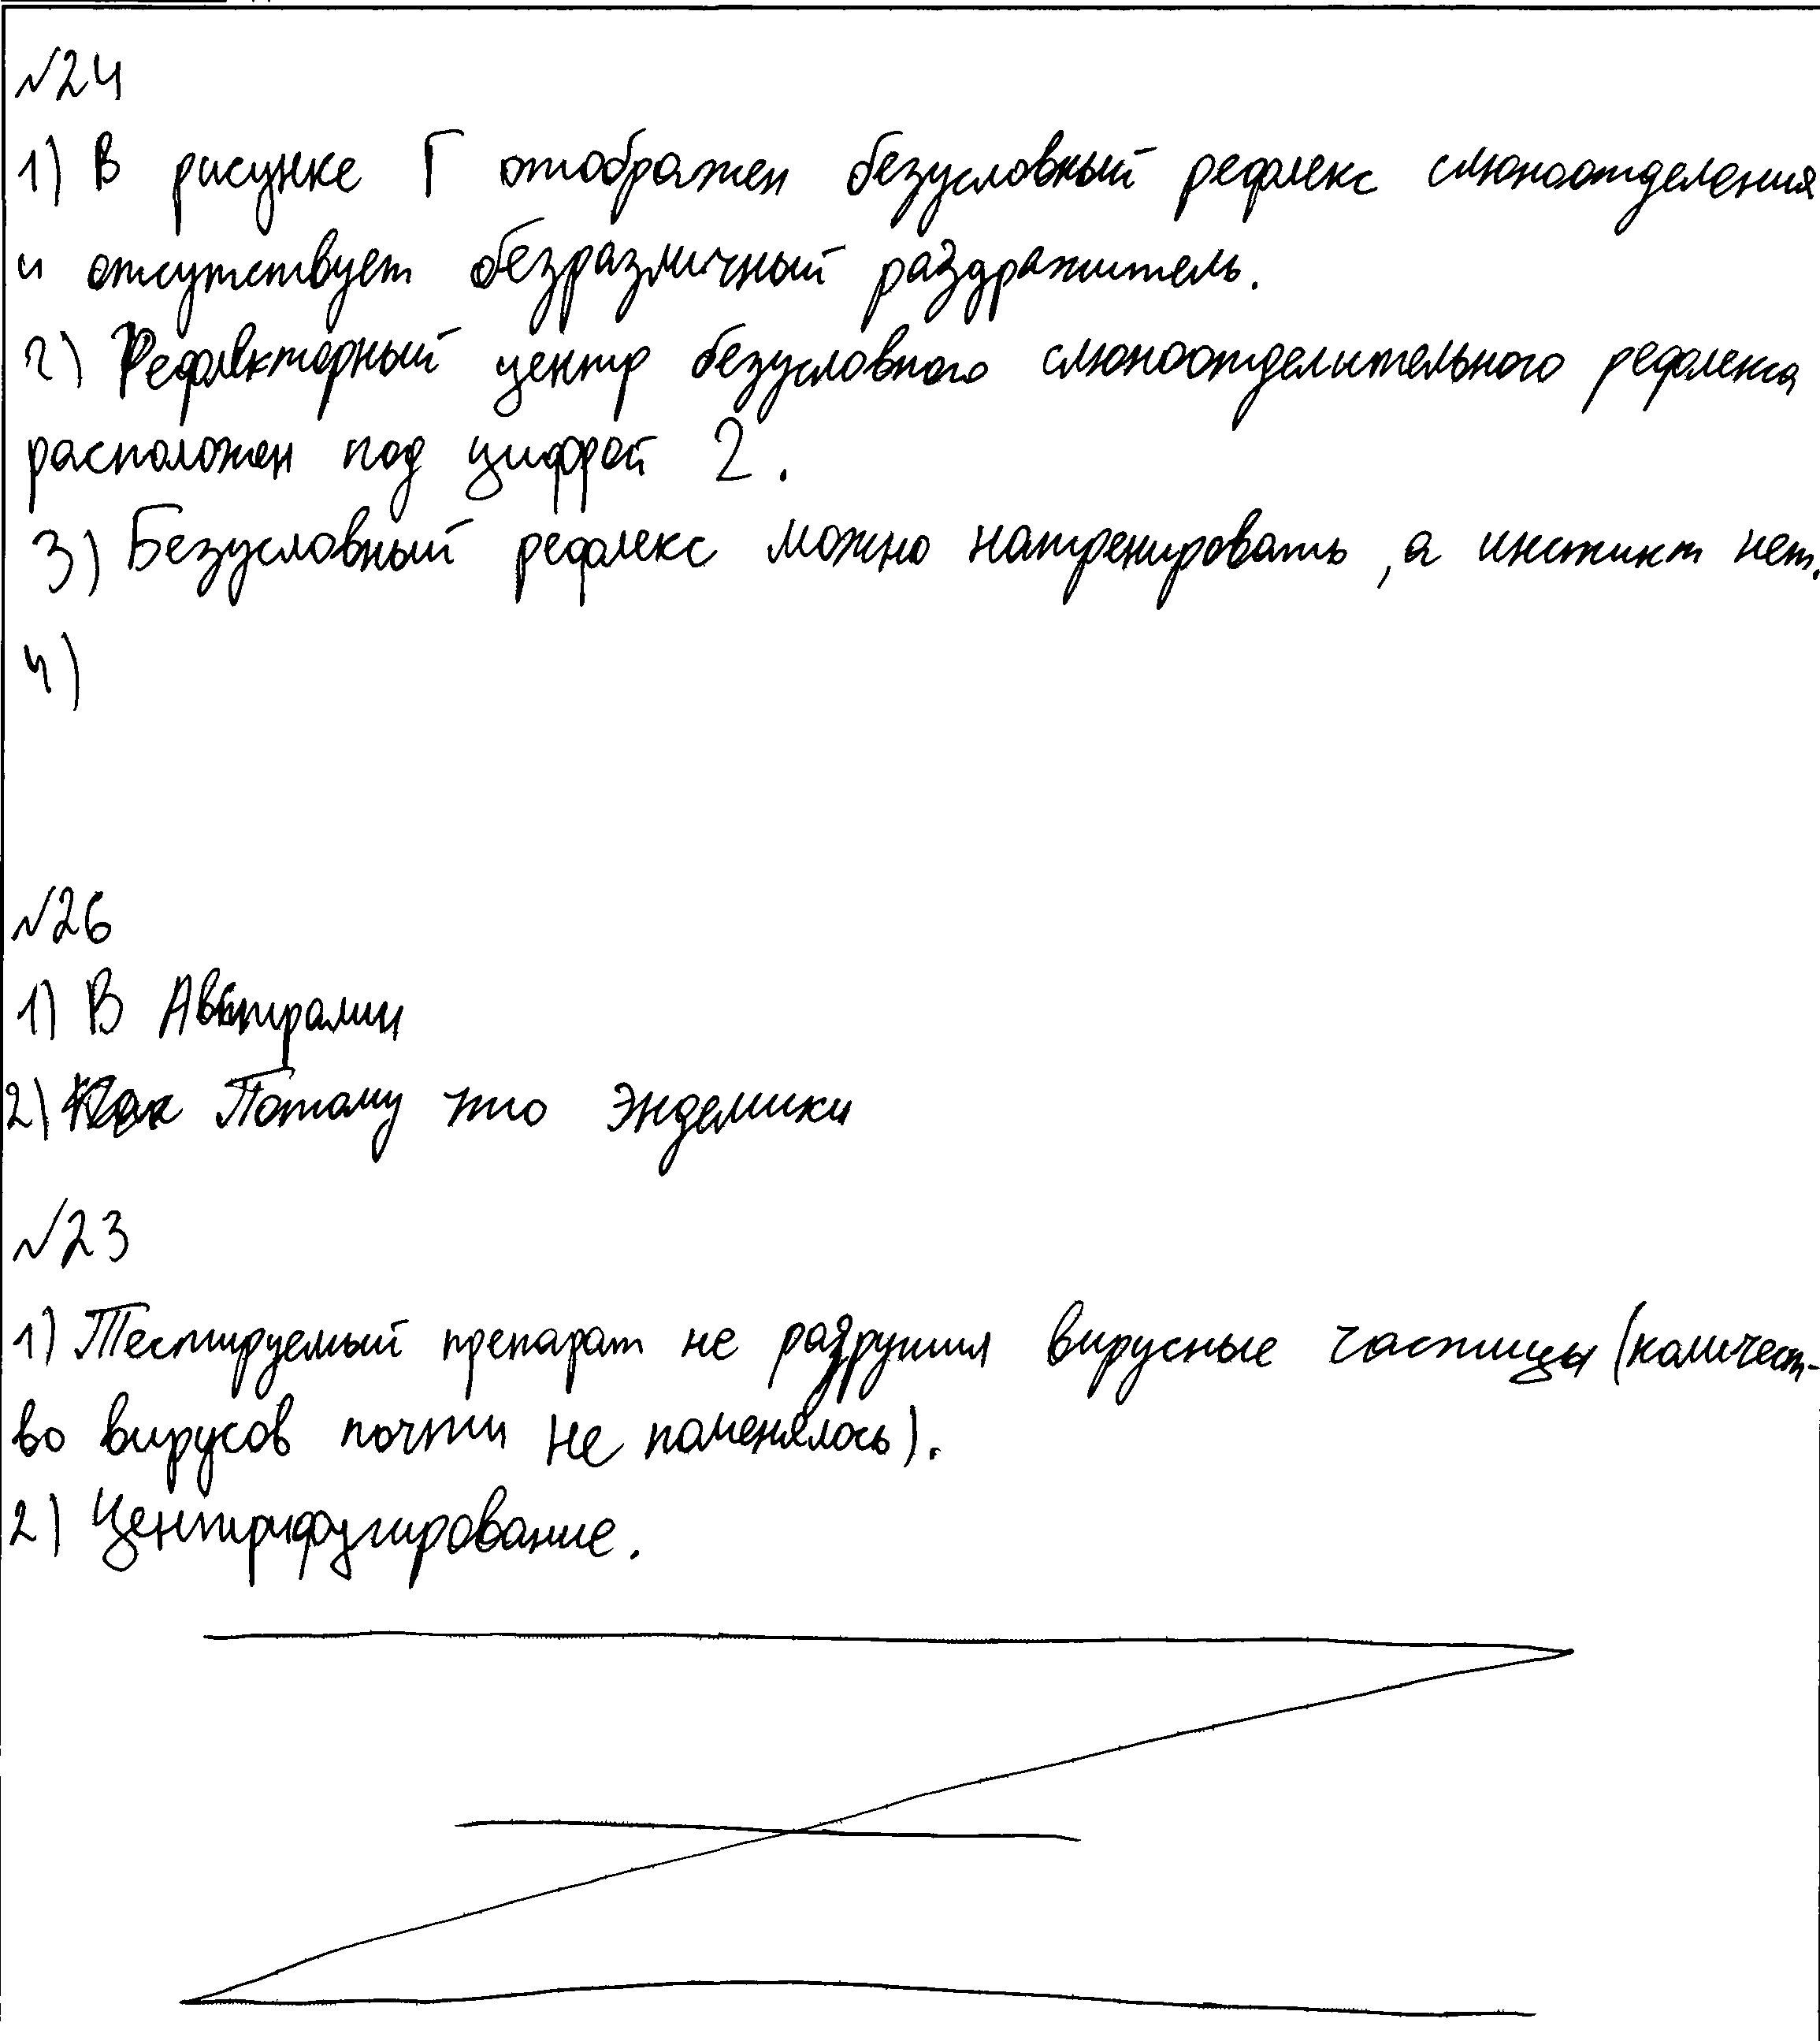 №24
1) В рисунке Г отображен безусловный рефлекс слюноотделения
и отсутствует безразличный раздражитель.
2) Рефлекторный центр безусловного слюноотделительного рефлекса
расположен под цифрой 2.
3) Безусловный рефлекс можно натренировать, а инстинкт нет.
4)
№26
1) В Австралии
2) Потому что эндемики
№23
1) Тестируемый препарат не разрушил вирусные частицы (количест-
во вирусов почти не поменялось).
2) Центрифугирование.